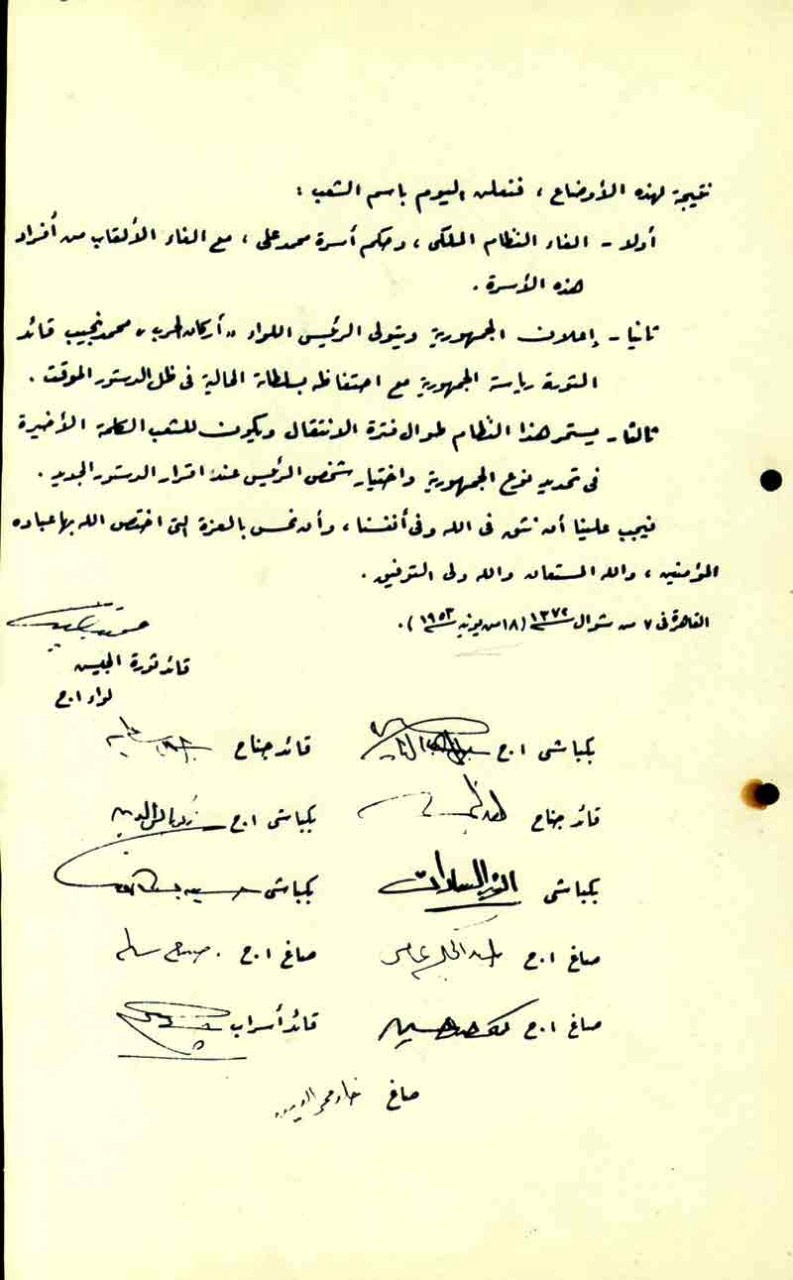 نتيجة لهذه الأوضاع ، فنعلن اليوم باسم الشعب :
أولا - الغاء النظام الملكى ، وحكم أسرة محمد على ، مع الغاء الألقاب من أفراد
هذه الأسرة .
ثانيا - إعلان الجمهورية ويتولى الرئيس اللواء " أركان حرب " محمد نجيب قائد
الثورة رياسة الجمهورية مع احتفاظه بسلطاته الحالية فى ظل الدستور الموقت .
ثالثا - يستمر هذا النظام طوال فترة الانتقال ويكون للشعب الكلمة الأخيرة
فى تحديد نوع الجمهورية واختيار شخص الرئيس عند اقرار الدستور الجديد .
فيجب علينا أن نثق فى الله وفى أنفسنا ، وأن نحس بالعزة التى اختص الله بها عباده
المؤمنين ، والله المستعان والله ولى التوفيق .
القاهرة فى ٧ من شوال ١٣٧٢ ( ١٨ من يونيه ١٩٥٣ ) .
محمد نجيب
قائد ثورة الجيش
لواء ا.ح
بكباشى ا.ح قائد جناح
قائد جناح بكباشى ا.ح زكريا محى الدين
بكباشى أنور السادات بكباشى حسين
صاغ ا.ح عبد الحكيم عامر صاغ ا.ح صلاح سالم
صاغ ا.ح كمال الدين حسين قائد أسراب
صاغ خالد محى الدين